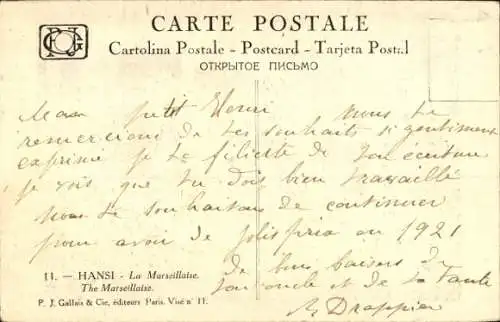 CARTE POSTALE
Cartolina Postale - Postcard - Tarjeta Postal
ОТКРЫТОЕ ПИСЬМО
Mon petit Henri nous te
remercions de tes souhaits si gentiment
exprimé je te félicite de ton écriture
je vois que tu dois bien travaillé
nous te souhaitons de continuer
pour avoir de jolis prix en 1921
de bons baisers de
ton oncle et de ta tante
Drappier
11. — HANSI - La Marseillaise.
The Marseillaise.
P. J. Gallais & Cie, éditeurs Paris. Visé n° 11.